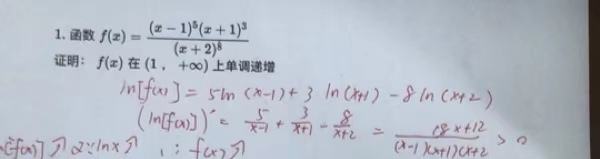 1. 函数 f(x) = \frac{(x-1)^5(x+1)^3}{(x+2)^8}
证明： f(x) 在 (1， +∞) 上单调递增
ln[f(x)] = 5ln(x-1)+3 ln(x+1) -8 ln(x+2)
(ln[f(x)])' = \frac{5}{x-1} + \frac{3}{x+1} - \frac{8}{x+2} = \frac{18x+12}{(x-1)(x+1)(x+2} > 0
[f(x)] ↗ 又∵ lnx ↗ ∴ f(x) ↗